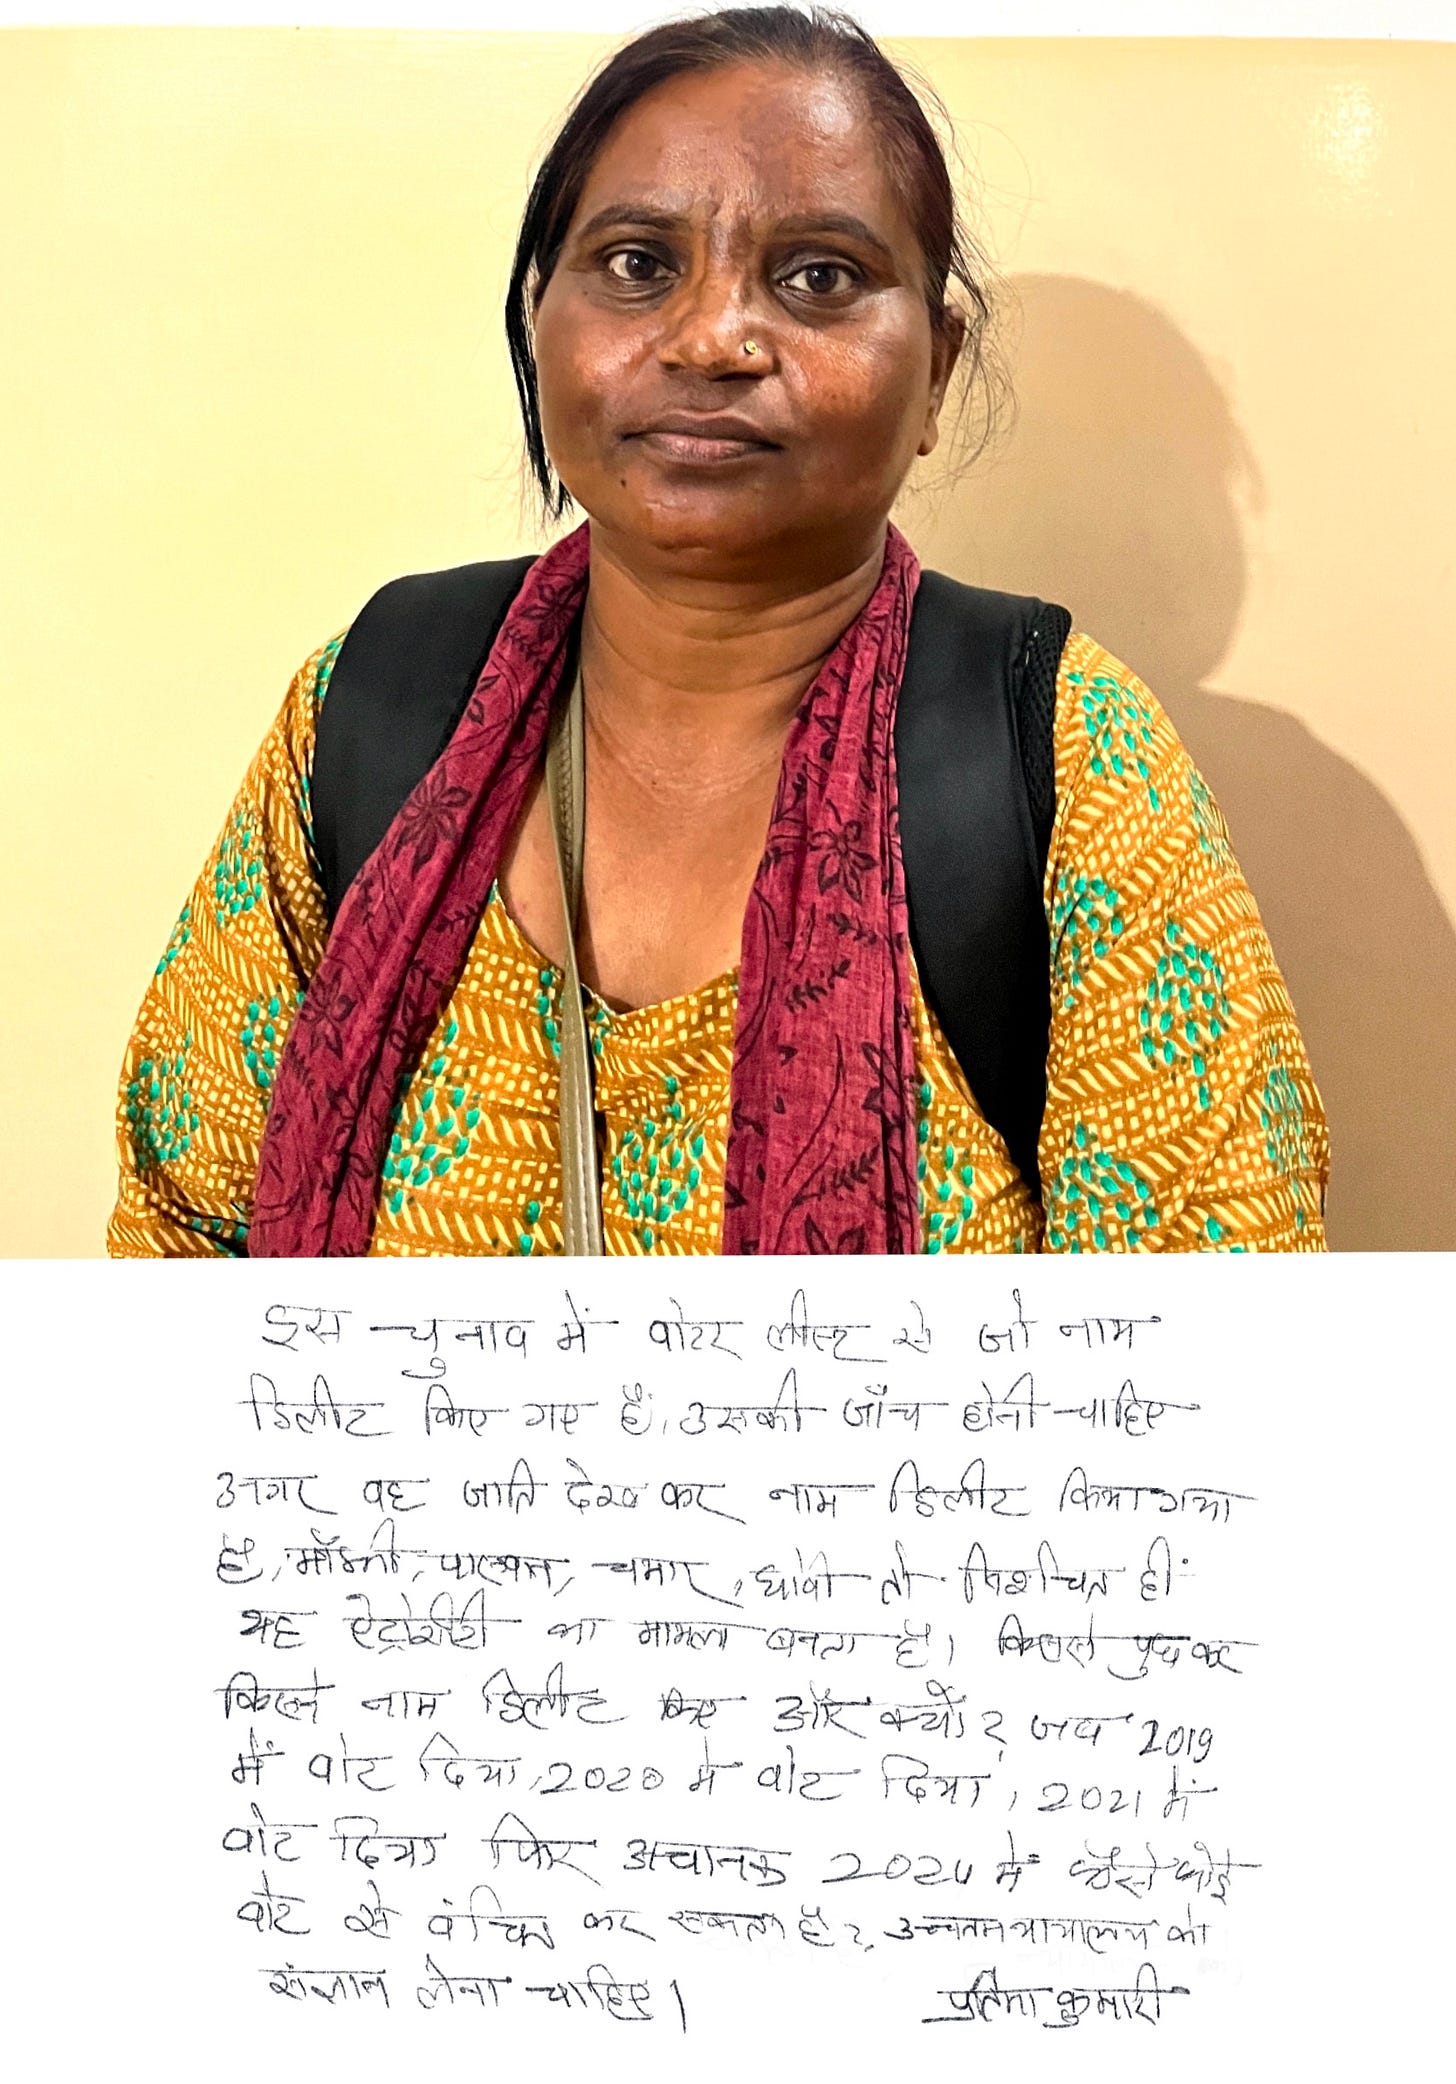 इस चुनाव में वोटर लीस्ट से जो नाम
डिलीट किए गए हैं, उसकी जाँच होनी चाहिए
अगर वह जाति देख कर नाम डिलीट किया गया
है, माँझी, पासवान, चमार, धोबी तो निश्चित ही
यह ऐट्रोसीटी का मामला बनता है। किससे पुछ कर
किसने नाम डिलीट किए और क्यों? जब 2019
में वोट दिया, 2020 में वोट दिया, 2021 में
वोट दिया फिर अचानक 2024 में कैसे कोई
वोट से वंचित कर सकता है?, उच्चतम न्यायालय को
संज्ञान लेना चाहिए।
प्रतिमा कुमारी